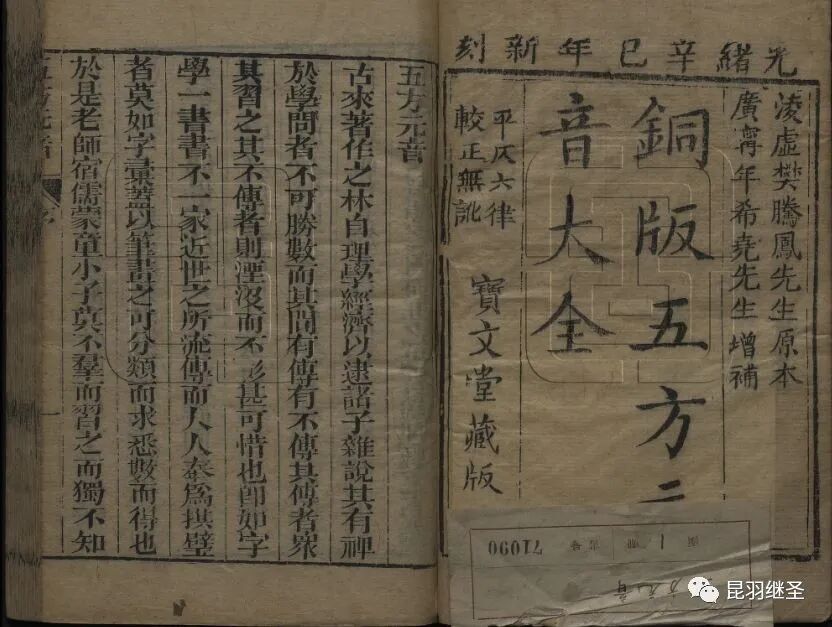 光緒辛巳年新刻
淩虛樊騰鳳先生原本
廣寧年希堯先生增補
銅版五方二
音大全
平仄六律
較正無訛
寶文堂藏版
五方元音
古來著作之林自理學經濟以逮諸子雜說其有裨
於學問者不可勝數而其間有傳有不傳其傳者衆
其習之其不傳者則湮沒而不彰甚可惜也即如字
學一書書不一家近世之所流傳而人人奉爲拱璧
者莫如字彙蓋以筆畫之可分類而求悉數而得也
於是老師宿儒蒙童小子莫不羣而習之而獨不知
五方元音
序
一
71090
昆羽继圣